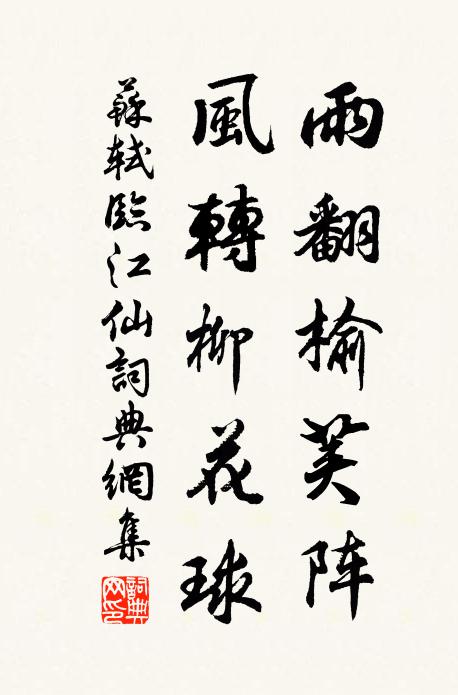 雨翻榆荚阵
風轉柳花球
蘇軾臨江仙詞典網集
詞典
网印